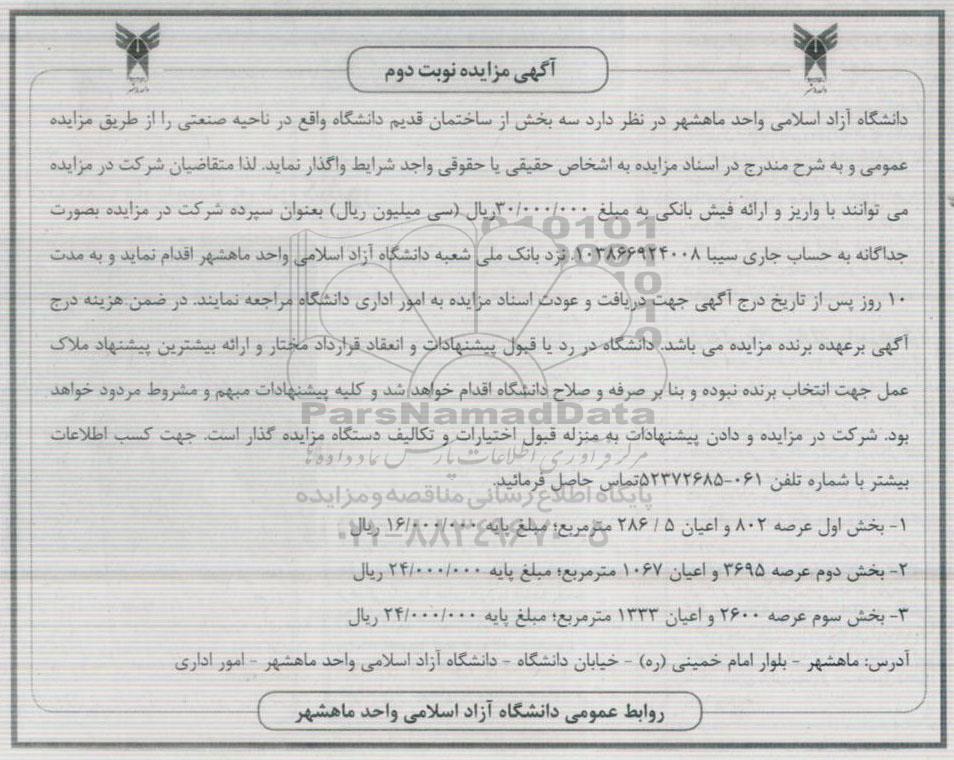 آگهی مزایده نوبت دوم
دانشگاه آزاد اسلامی واحد ماهشهر در نظر دارد سه بخش از ساختمان قدیم دانشگاه واقع در ناحیه صنعتی را از طریق مزایده
عمومی و به شرح مندرج در اسناد مزایده به اشخاص حقیقی یا حقوقی واجد شرایط واگذار نماید. لذا متقاضیان شرکت در مزایده
می توانند با واریز و ارائه فیش بانکی به مبلغ ۳۰/۰۰۰/۰۰۰ریال (سی میلیون ریال) بعنوان سپرده شرکت در مزایده بصورت
جداگانه به حساب جاری سیبا ۱۰۳۸۶۶۹۲۴۰۰۸. نزد بانک ملی شعبه دانشگاه آزاد اسلامی واحد ماهشهر اقدام نماید و به مدت
۱۰ روز پس از تاریخ درج آگهی جهت دریافت و عودت اسناد مزایده به امور اداری دانشگاه مراجعه نمایند. در ضمن هزینه درج
آگهی برعهده برنده مزایده می باشد. دانشگاه در رد یا قبول پیشنهادات و انعقاد قرارداد مختار و ارائه بیشترین پیشنهاد ملاک
عمل جهت انتخاب برنده نبوده و بنا بر صرفه و صلاح دانشگاه اقدام خواهد شد و کلیه پیشنهادات مبهم و مشروط مردود خواهد
ParsNamadData
بود. شرکت در مزایده و دادن پیشنهادات به منزله قبول اختیارات و تکالیف دستگاه مزایده گذار است. جهت کسب اطلاعات
مرکز فرآوری اطلاعات پارس نماد داده ها
بیشتر با شماره تلفن ۰۶۱-۵۲۳۷۲۶۸۵تماس حاصل فرمائید.
پایگاه اطلاع رسانی مناقصه و مزایده
۱- بخش اول عرصه ۸۰۲ و اعیان ۵ / ۲۸۶ مترمربع؛ مبلغ پایه ۱۶/۰۰۰/۰۰۰ ریال
۰۲۱-۸۸۳۴۹۶۷۰-۵
۲- بخش دوم عرصه ۳۶۹۵ و اعیان ۱۰۶۷ مترمربع؛ مبلغ پایه ۲۴/۰۰۰/۰۰۰ ریال
۳- بخش سوم عرصه ۲۶۰۰ و اعیان ۱۳۳۳ مترمربع؛ مبلغ پایه ۲۴/۰۰۰/۰۰۰ ریال
آدرس: ماهشهر - بلوار امام خمینی (ره) - خیابان دانشگاه - دانشگاه آزاد اسلامی واحد ماهشهر - امور اداری
روابط عمومی دانشگاه آزاد اسلامی واحد ماهشهر